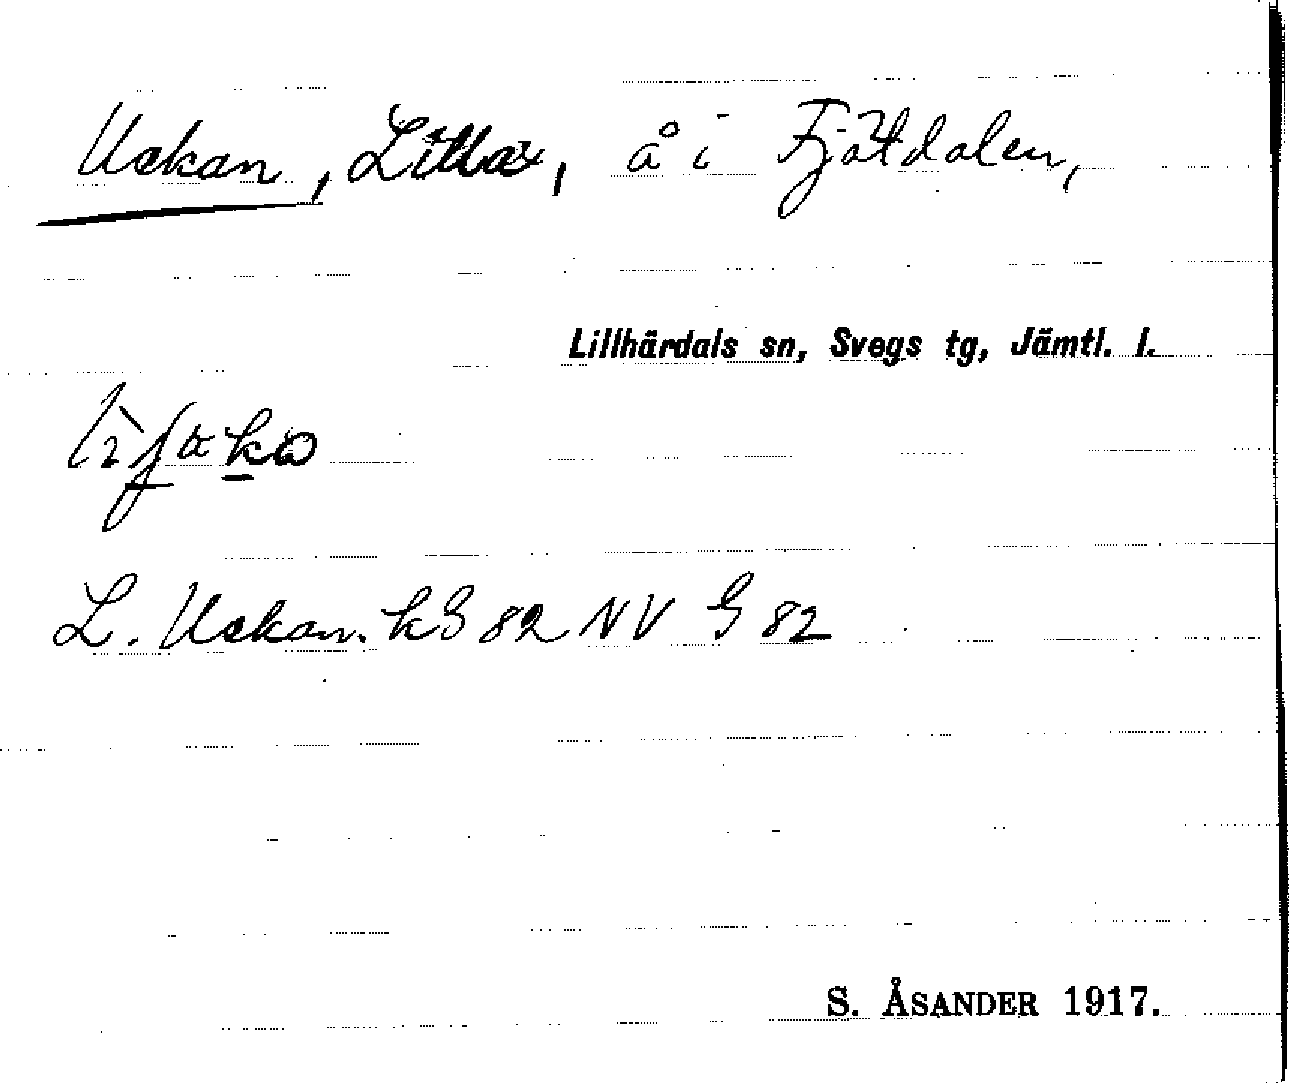 Uckan, Lilla, å i Fjätdalen,
Lillhärdals sn, Svegs tg, Jämtl. l.
L. Uckan. kG 82 NV G 82
S. ÅSANDER 1917.